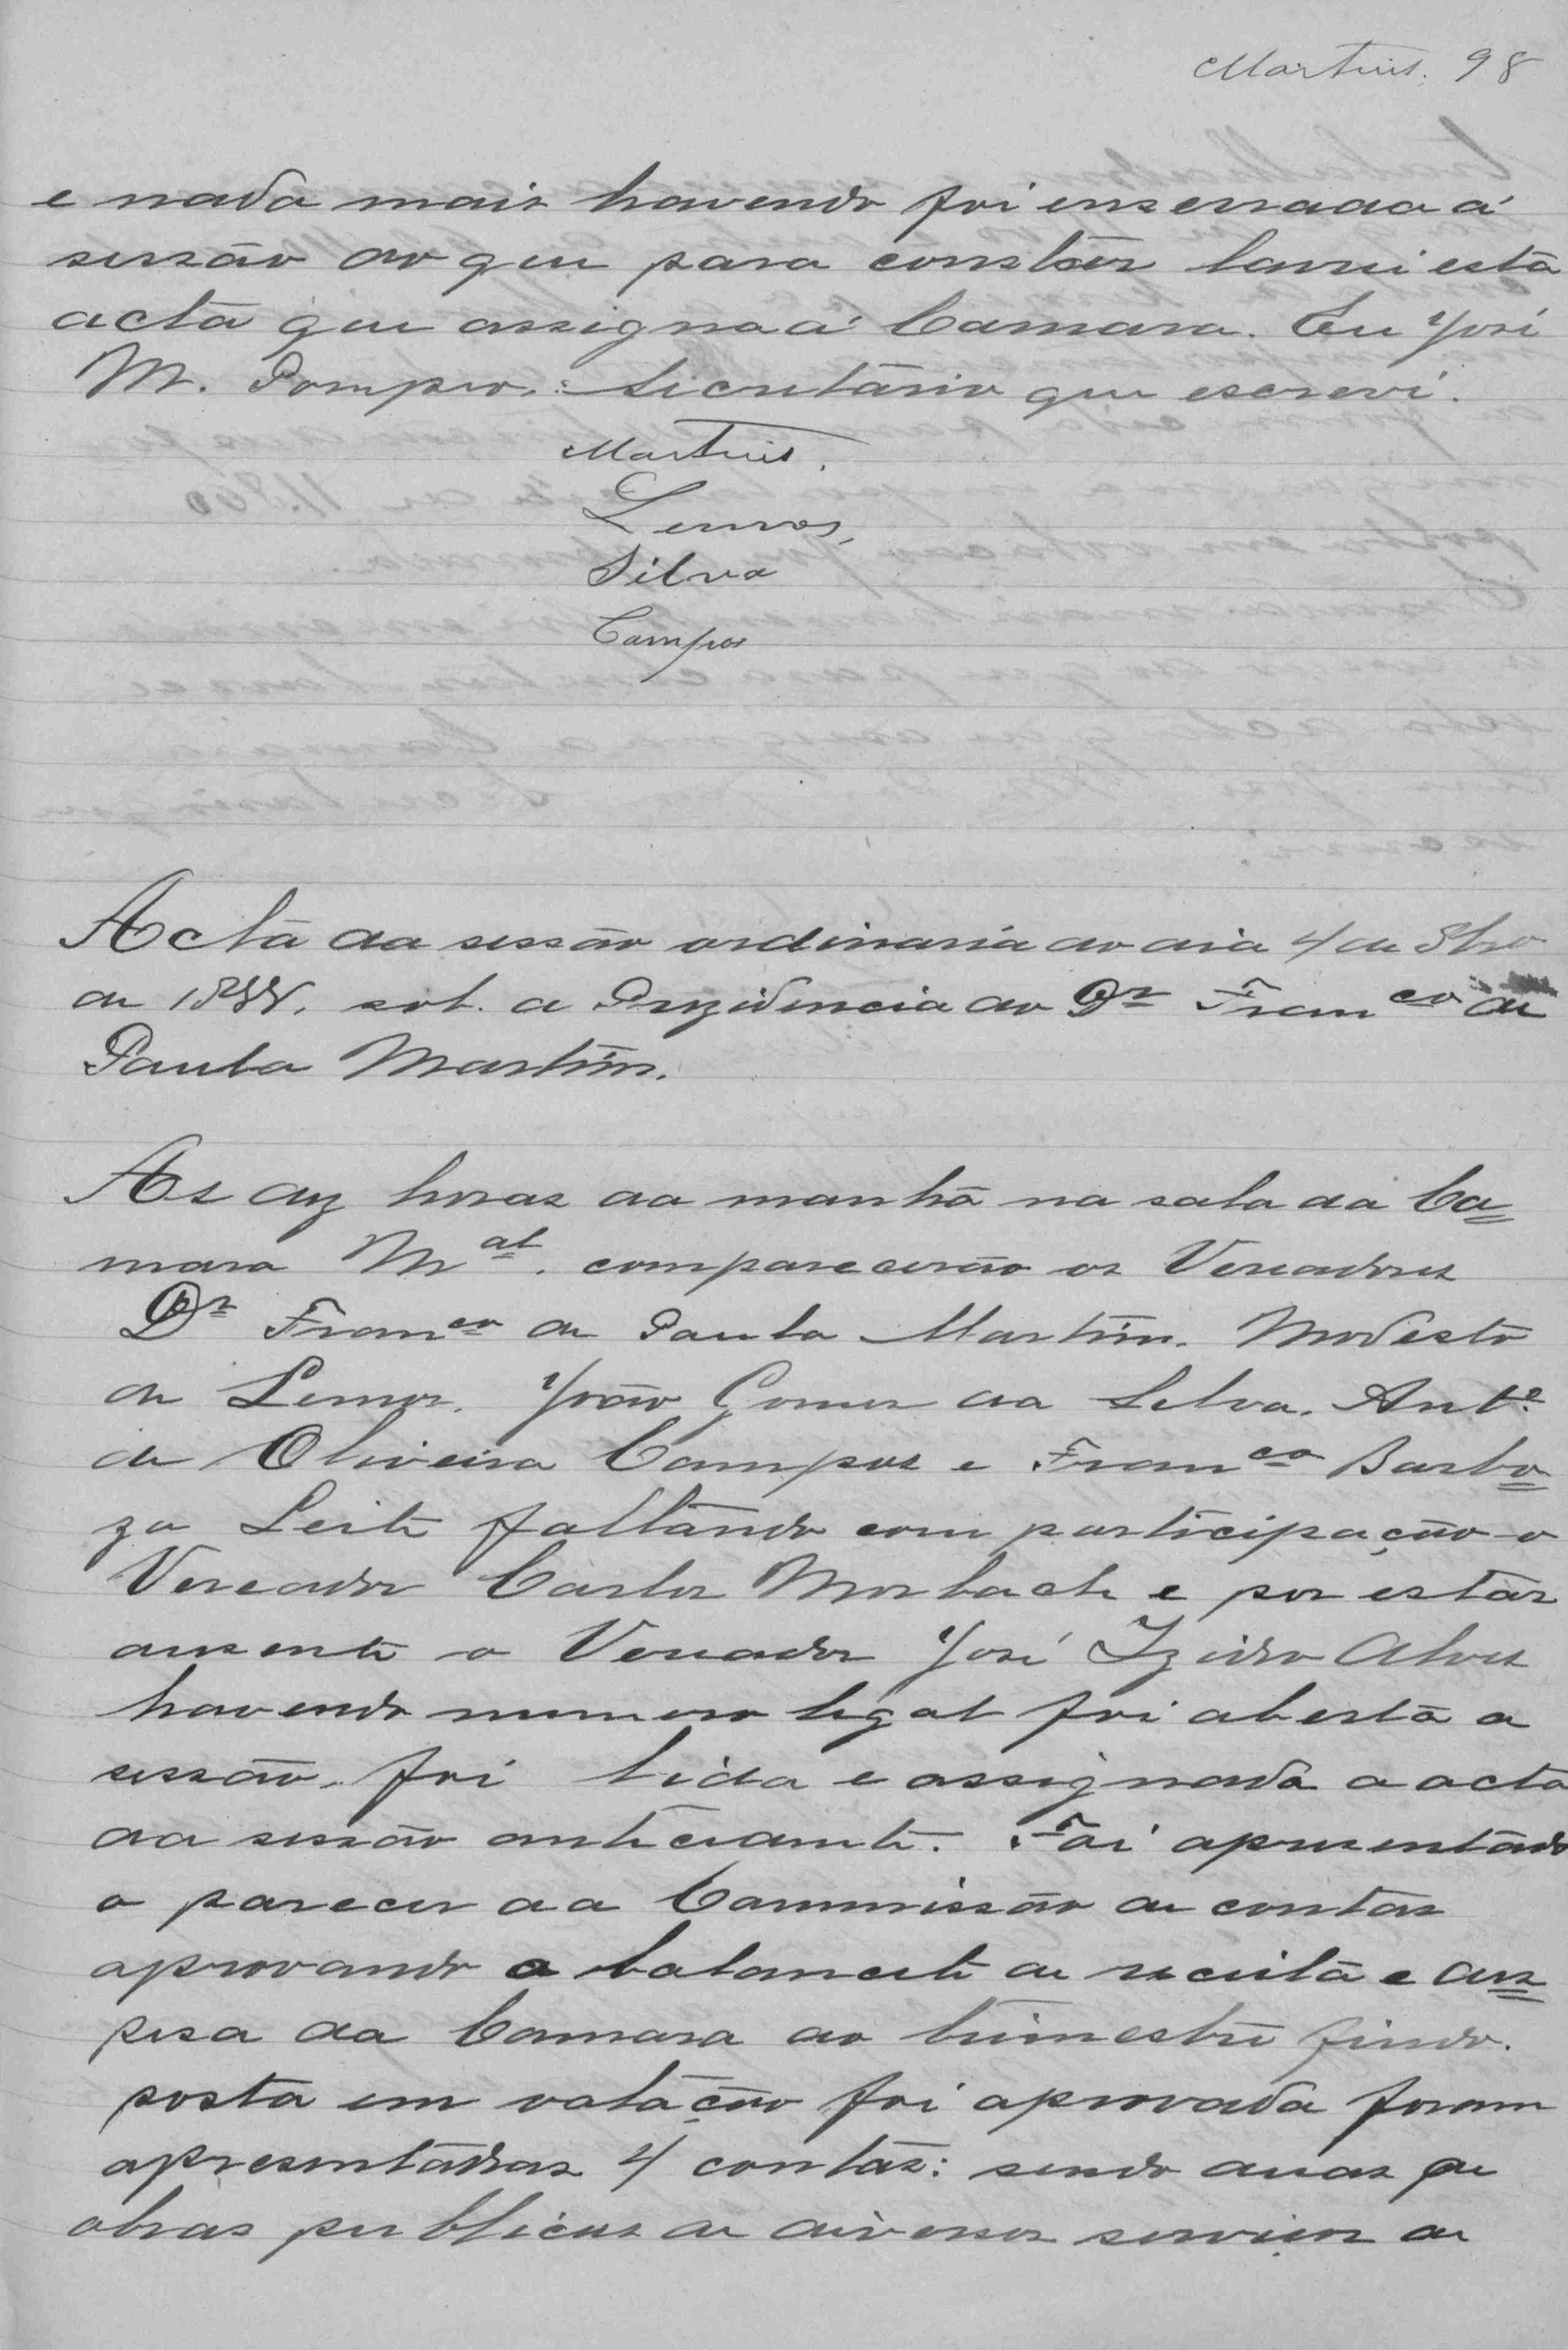 Martins. 98
e nada mais havendo foi enserrada á
sessão do que para constar lavrei esta
acta que assigna á Camara. Eu José
M. Pompeo. Secretário que escrevi.
Martins.
Lemos,
Silva
Campos
Acta da sessão ordinaria do dia 4 de
de 1888. sob. a Prezidencia do Dr Franco de
Paula Martins.
As dez horas da manhã na sala da Ca=
mara Mal. comparecerão os Vereadores
Dr Franco de Paula Martins. Modesto
de Lemos. João Gomes da Silva. Anto
de Oliveira Campos e Franco Barbo=
za Leite faltando com participação o
Vereador Carlos Morbach e por estár
ausente o Vereador José Izidro Alves
havendo numero legal foi aberta a
sessão. foi lida e assignada a acta
da sessão antecedente. Foi apresentado
o parecer da Commissão de contas
aprovando o balancete de receita e des=
pesa da Camara do trimestre findo.
posta em votação foi aprovada foram
apresentadas 4 contas: sendo duas de
obras publicas de diversos serviços de